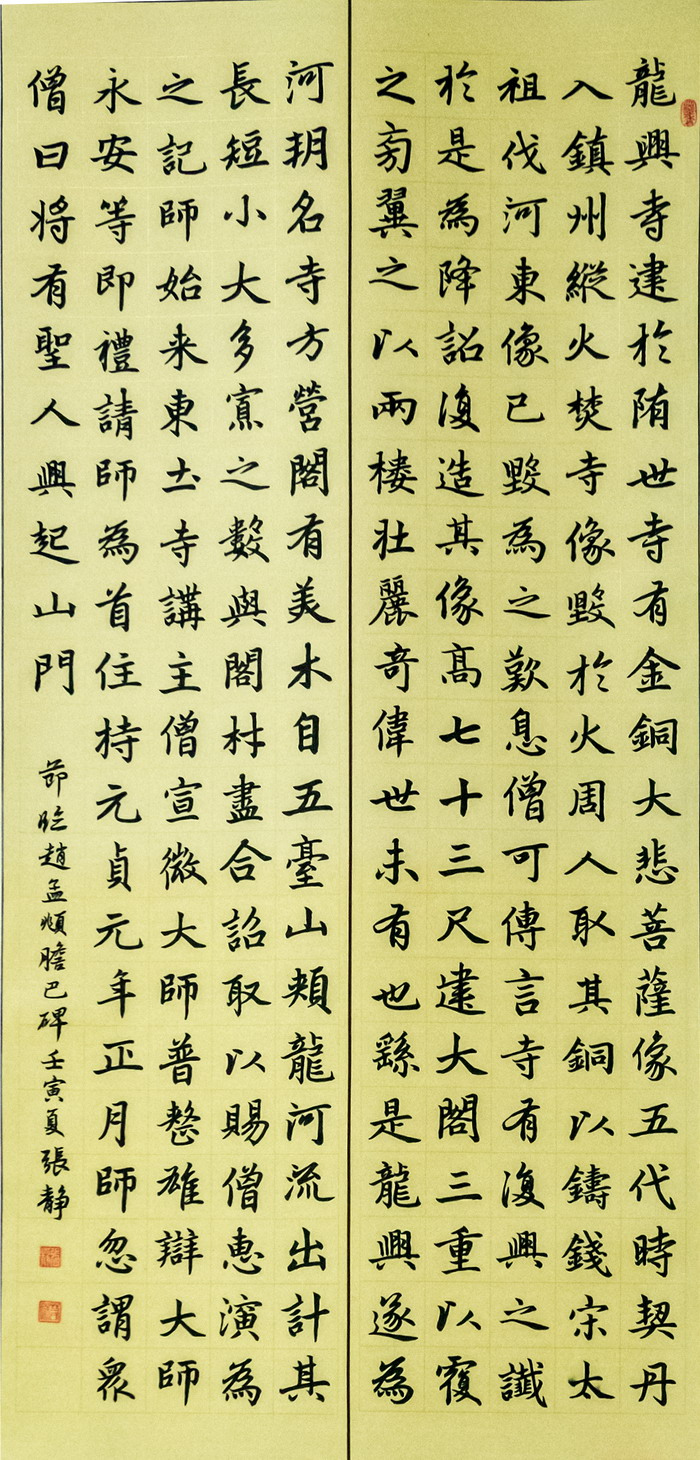 龍興寺建於隋世寺有金銅大悲菩薩像五代時契丹
入鎮州縱火焚寺像毀於火周人取其銅以鑄錢宋太
祖伐河東像已毀為之歎息僧可傳言寺有復興之讖
於是為降詔復造其像高七十三尺建大閣三重以覆
之旁翼之以兩樓壯麗奇偉世未有也繇是龍興遂為
河朔名寺方營閣有美木自五臺山頰龍河流出計其
長短小大多寡之數與閣材盡合詔取以賜僧惠演為
之記師始来東土寺講主僧宣微大師普整雄辯大師
永安等即禮請師為首住持元貞元年正月師忽謂眾
僧曰将有聖人興起山門
節臨趙孟頫膽巴碑壬寅夏張靜